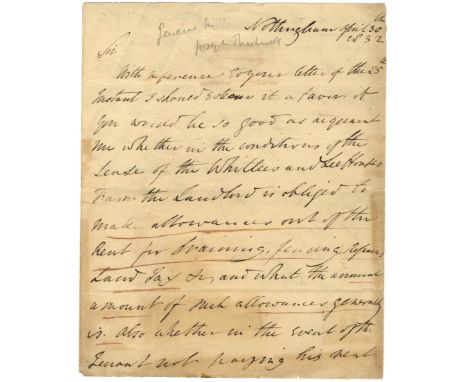 General
Joseph
Nottingham April 30th
1832
Sir
With reference to your letter of the 25th
Instant I should esteem it a favor if
you would be so good as acquaint
me whether in the conditions of the
Lease of the and
Farm the Landlord is obliged to
make allowances out of the
Rent for draining, fencing, Repairs,
Land Tax &c, and what the annual
amount of such allowances generally
is. also whether in the event of the
Tenant not paying his rent